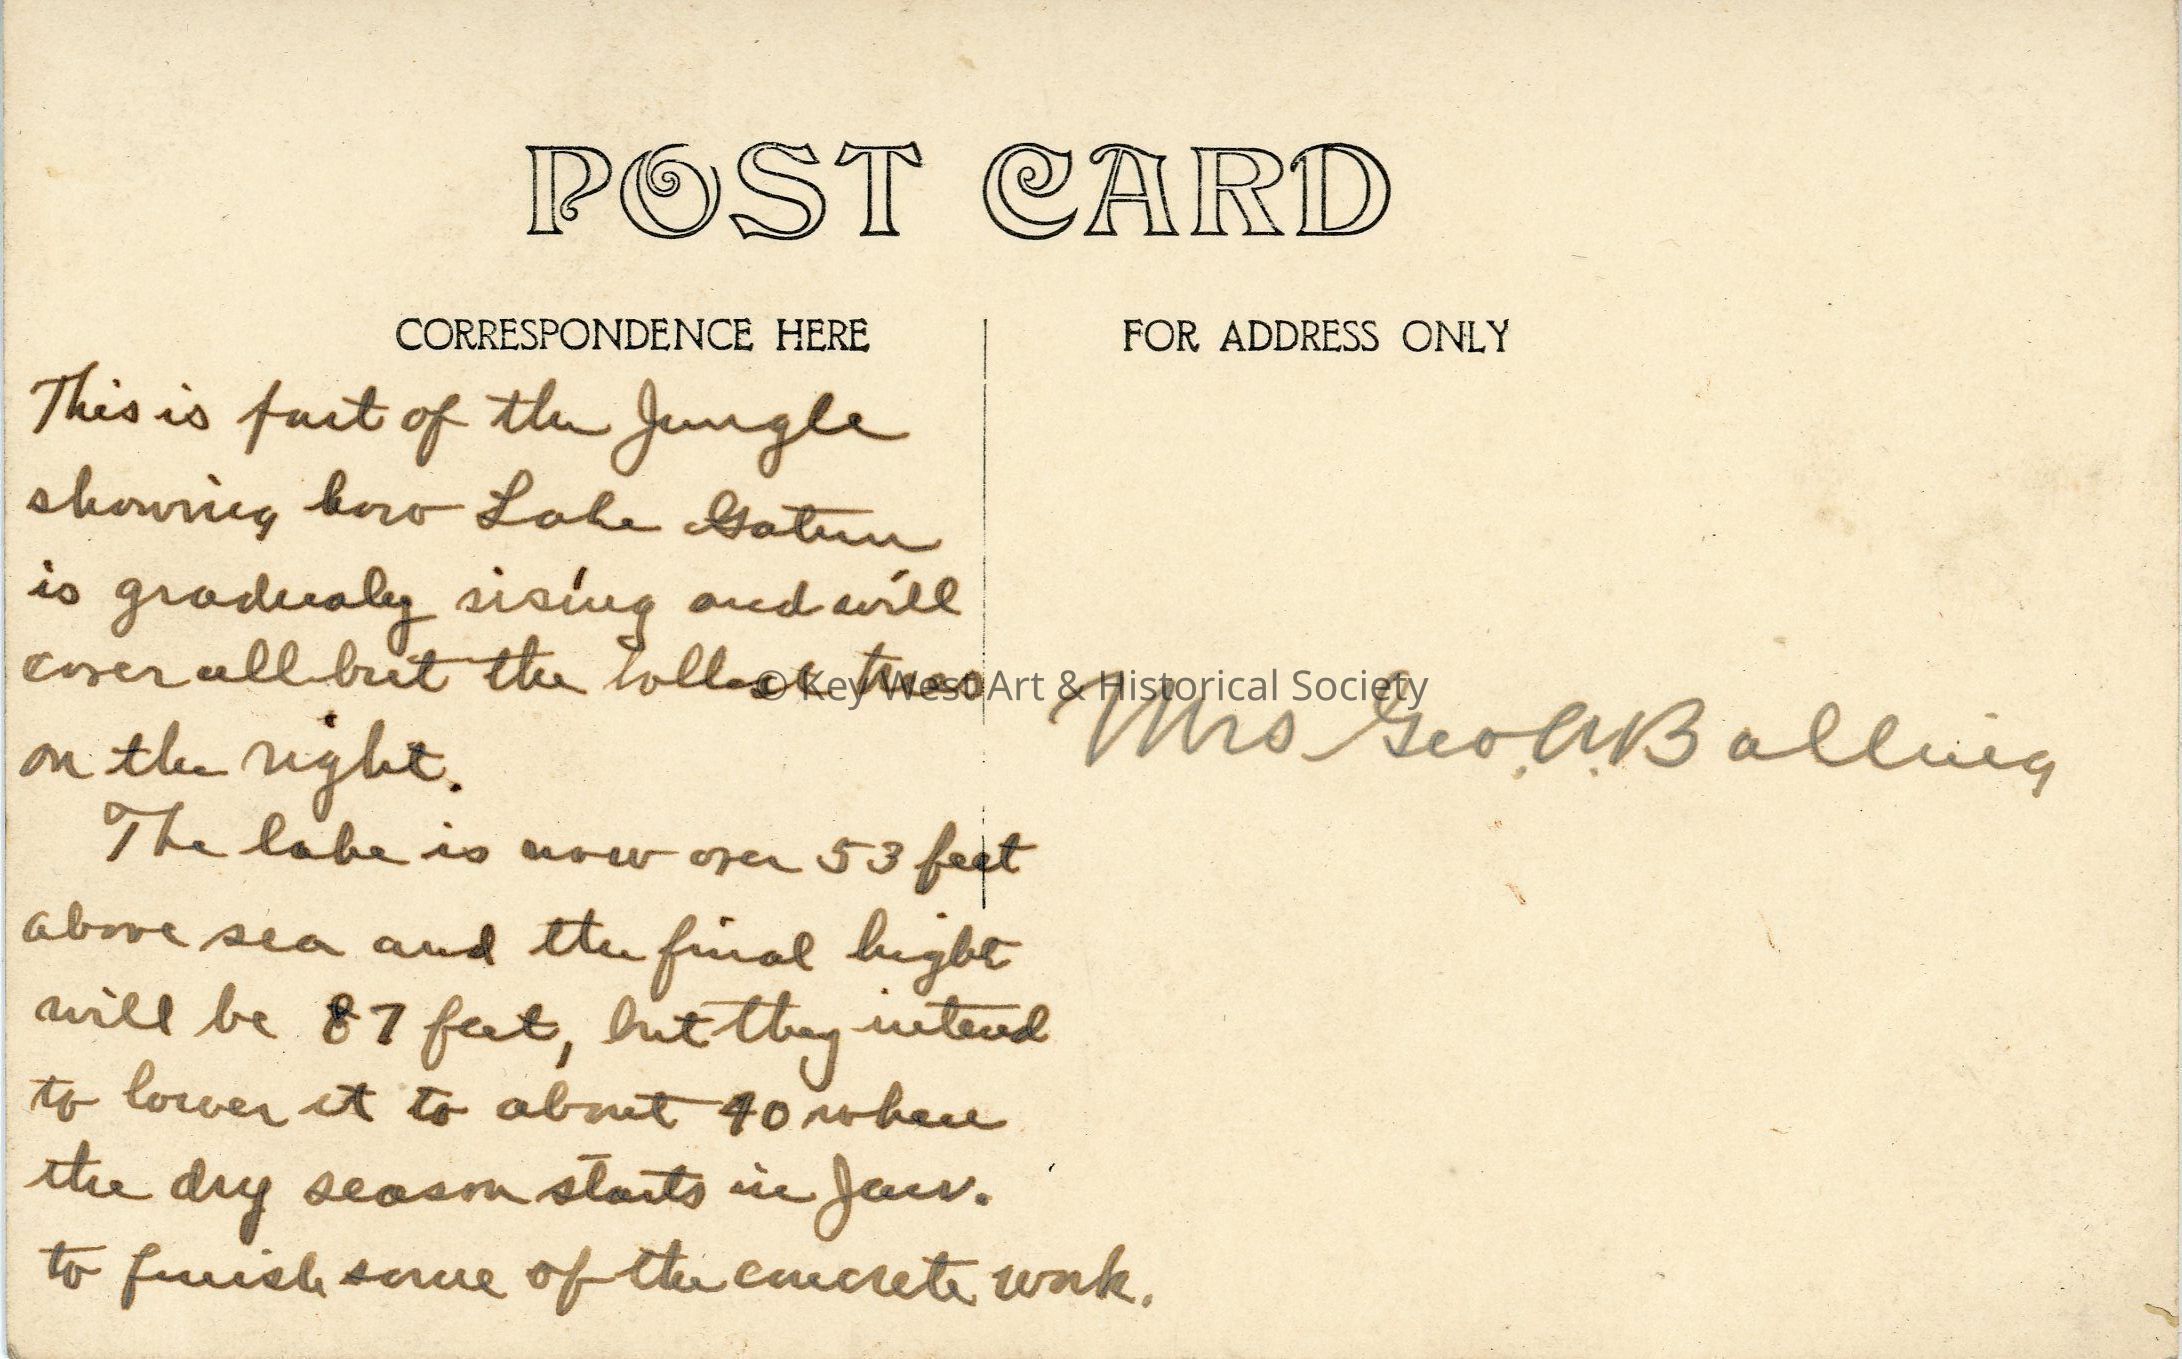 POST CARD
CORRESPONDENCE HERE
FOR ADDRESS ONLY
This is part of the Jungle
showing how Lake Gatun
is gradualy rising and will
cover all but the tallest trees
on the right.
The lake is now over 53 feet
above sea and the final hight
will be 87 feet, but they intend
to lower it to about 40 when
the dry season starts in Jan.
to finish some of the concrete work.
Mrs Geo. A. Balling
© Key West Art & Historical Society